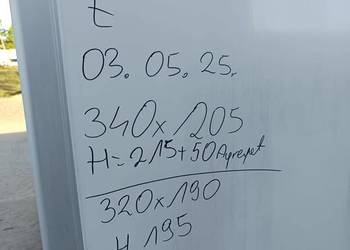 t
03. 05. 25.
340x205
H=215+50
320x190
H 195